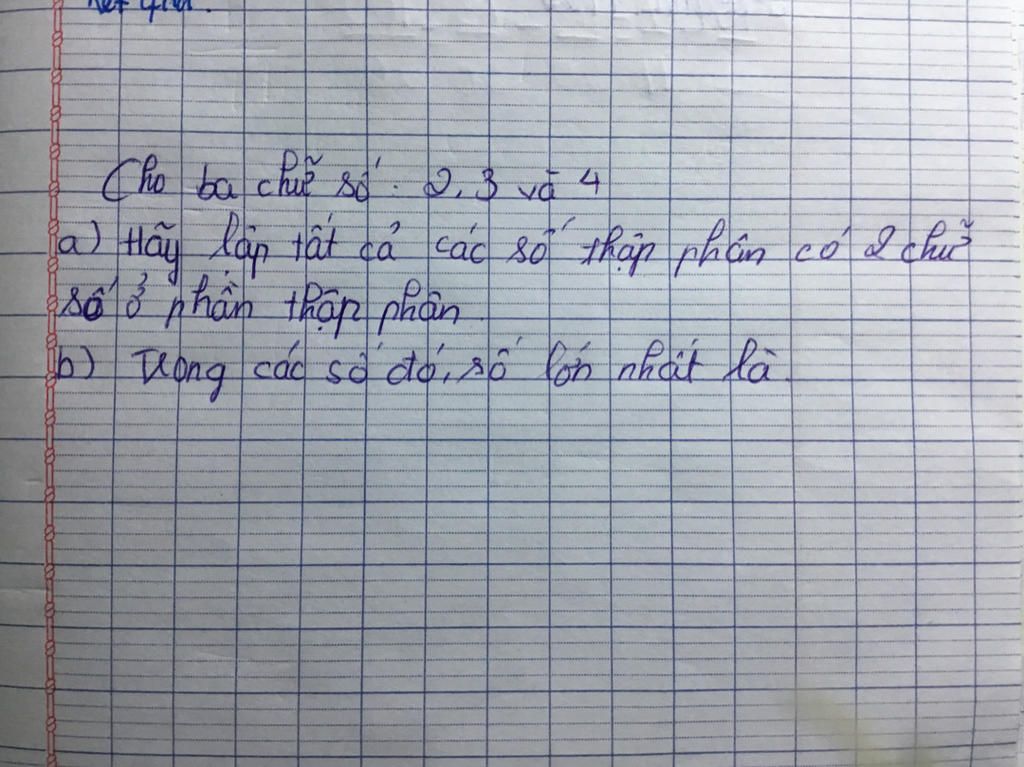 Cho ba chữ số : 2, 3 và 4
a) Hãy lập tất cả các số thập phân có 2 chữ
số ở phần thập phân.
b) Trong các số đó, số lớn nhất là.